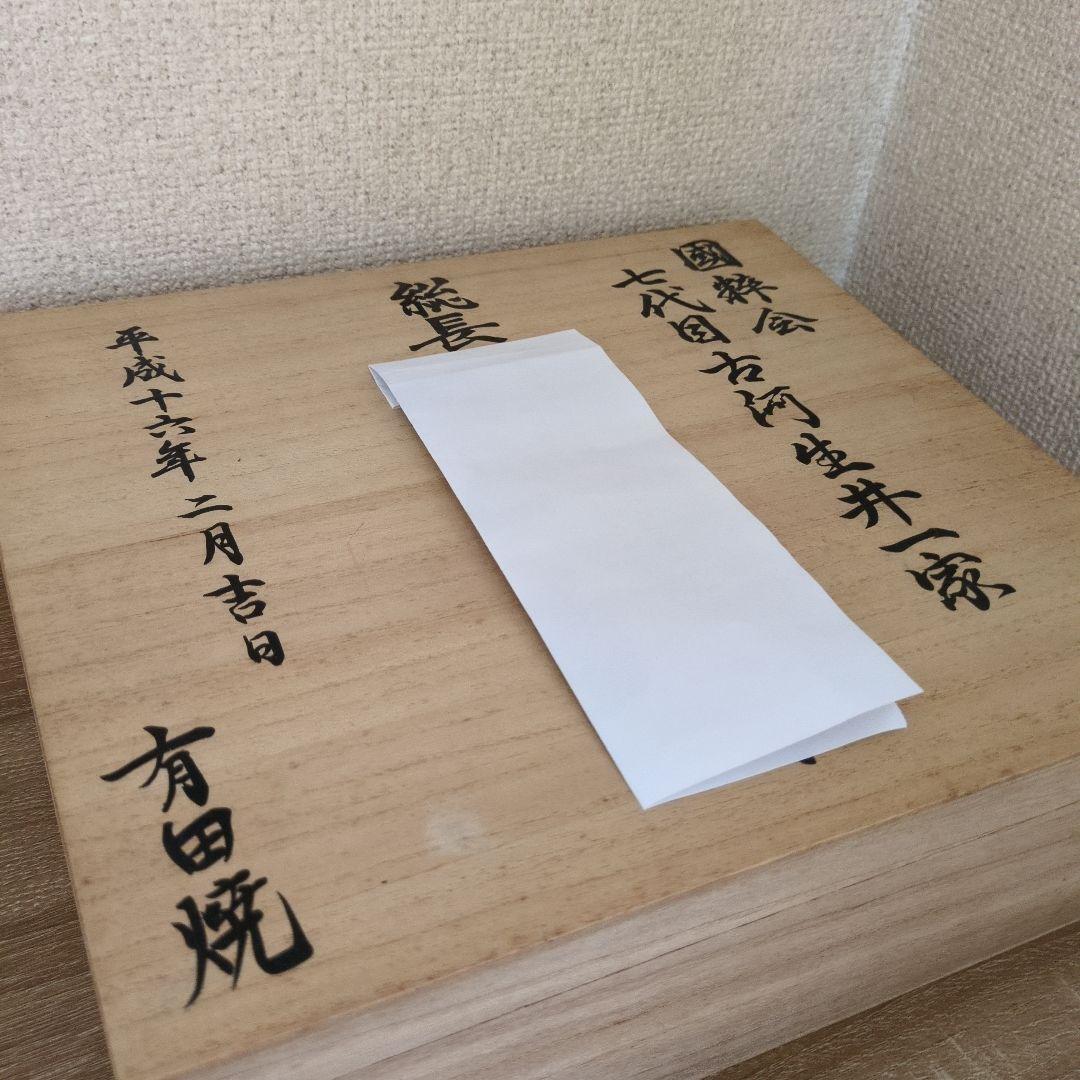 國粹会
七代目古河生井一家
総長
平成十六年二月吉日
有田焼